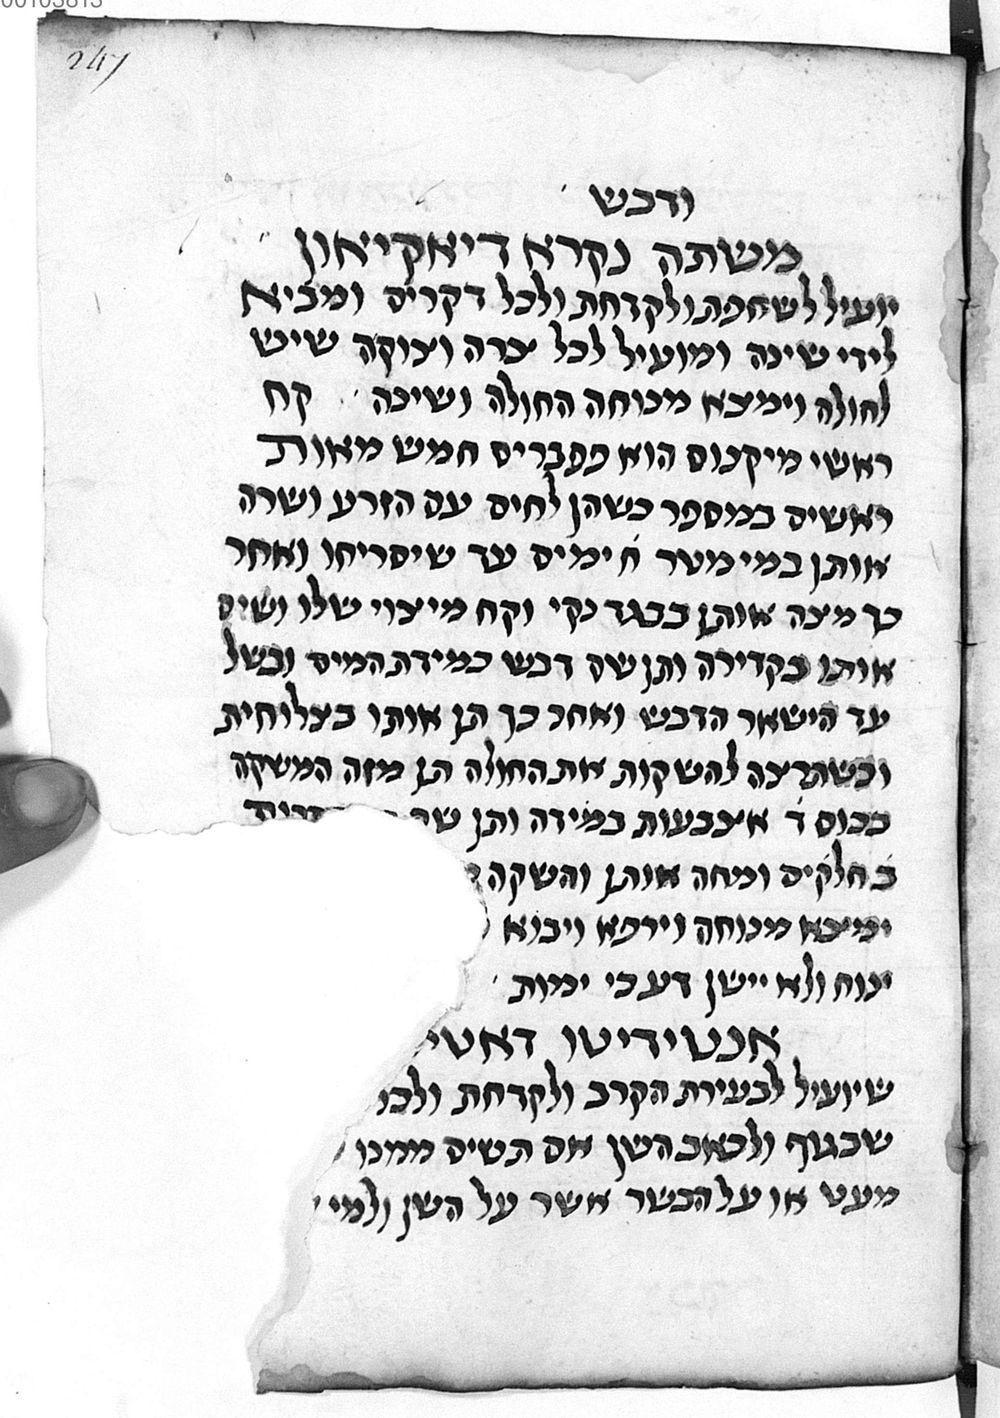 247
ודבש
משתה נקרא דיאקיאון
יועיל לשחפת ולקדחת ולכל דקרים ומביא
לידי שינה ומועיל לכל צרה וצוקה שיש
לחולה וימצא מנוחה החולה ושינה קח
ראשי מיקנוס הוא פפבריס חמש מאות
ראשים במספר כשהן לחים עם הזרע ושרה
אותן במי מטר ח ימים עד שיסריחו ואחר
כך מצה אותן בבגד נקי וקח מיצוי שלו ושים
אותו בקדירה ותן שם דבש כמידת המים ובשל
עד הישאר הדבש ואחר כך תן אותו בצלוחית
וכשתרצה להשקות את החולה תן מזה המשקה
בכוס ד אצבעות במידה ותן שם
ב חלקים ומחה אותן והשקה
ימצא מנוחה וירפא ויבוא
ינוח ולא יישן דע כי ימות
אנטידיטו דאטי
שיועיל לבעירת הקרב ולקדחת ולכ
שבגוף ולכאב השן אם תשים ממנו
מעט או על הבשר אשר על השן ולמי